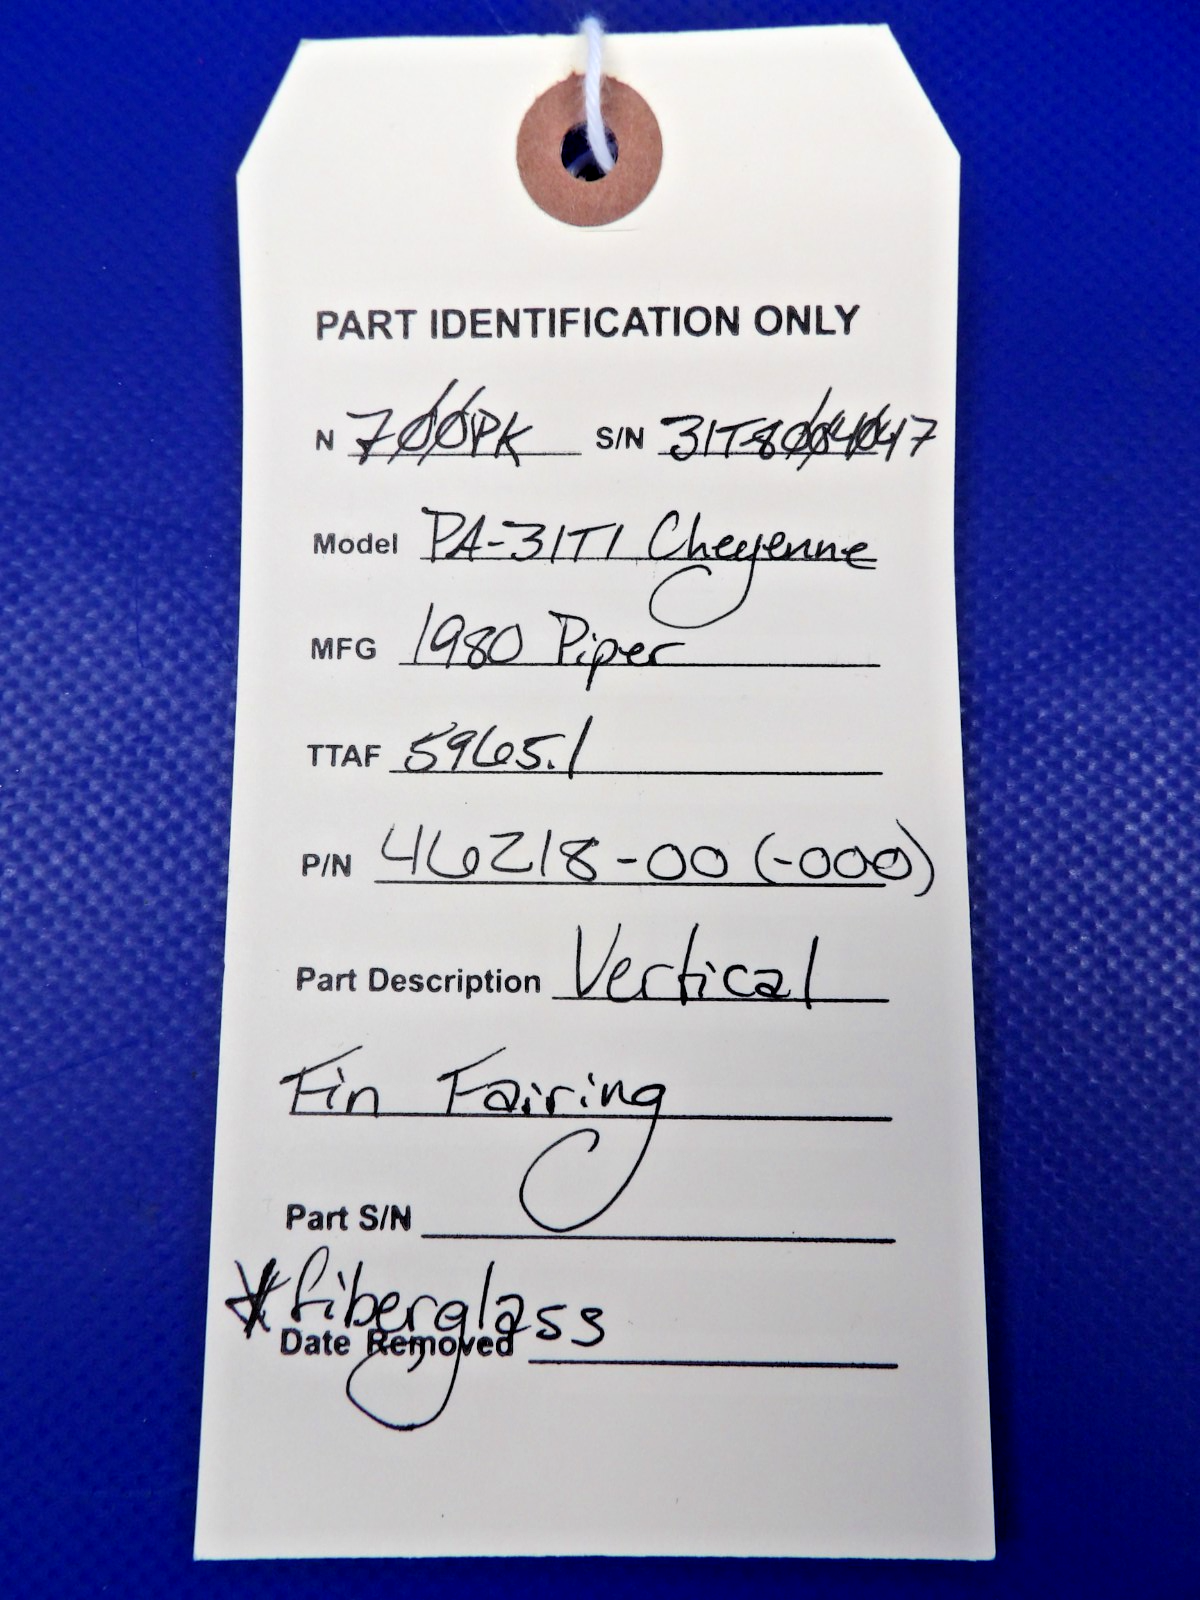 PART IDENTIFICATION ONLY
N 700PK S/N 31T8004047
Model PA-31T1 Cheyenne
MFG 1980 Piper
TTAF 5965.1
P/N 46218-00 (-000)
Part Description Vertical
Fin Fairing
Part S/N
*fiberglass
Date Removed